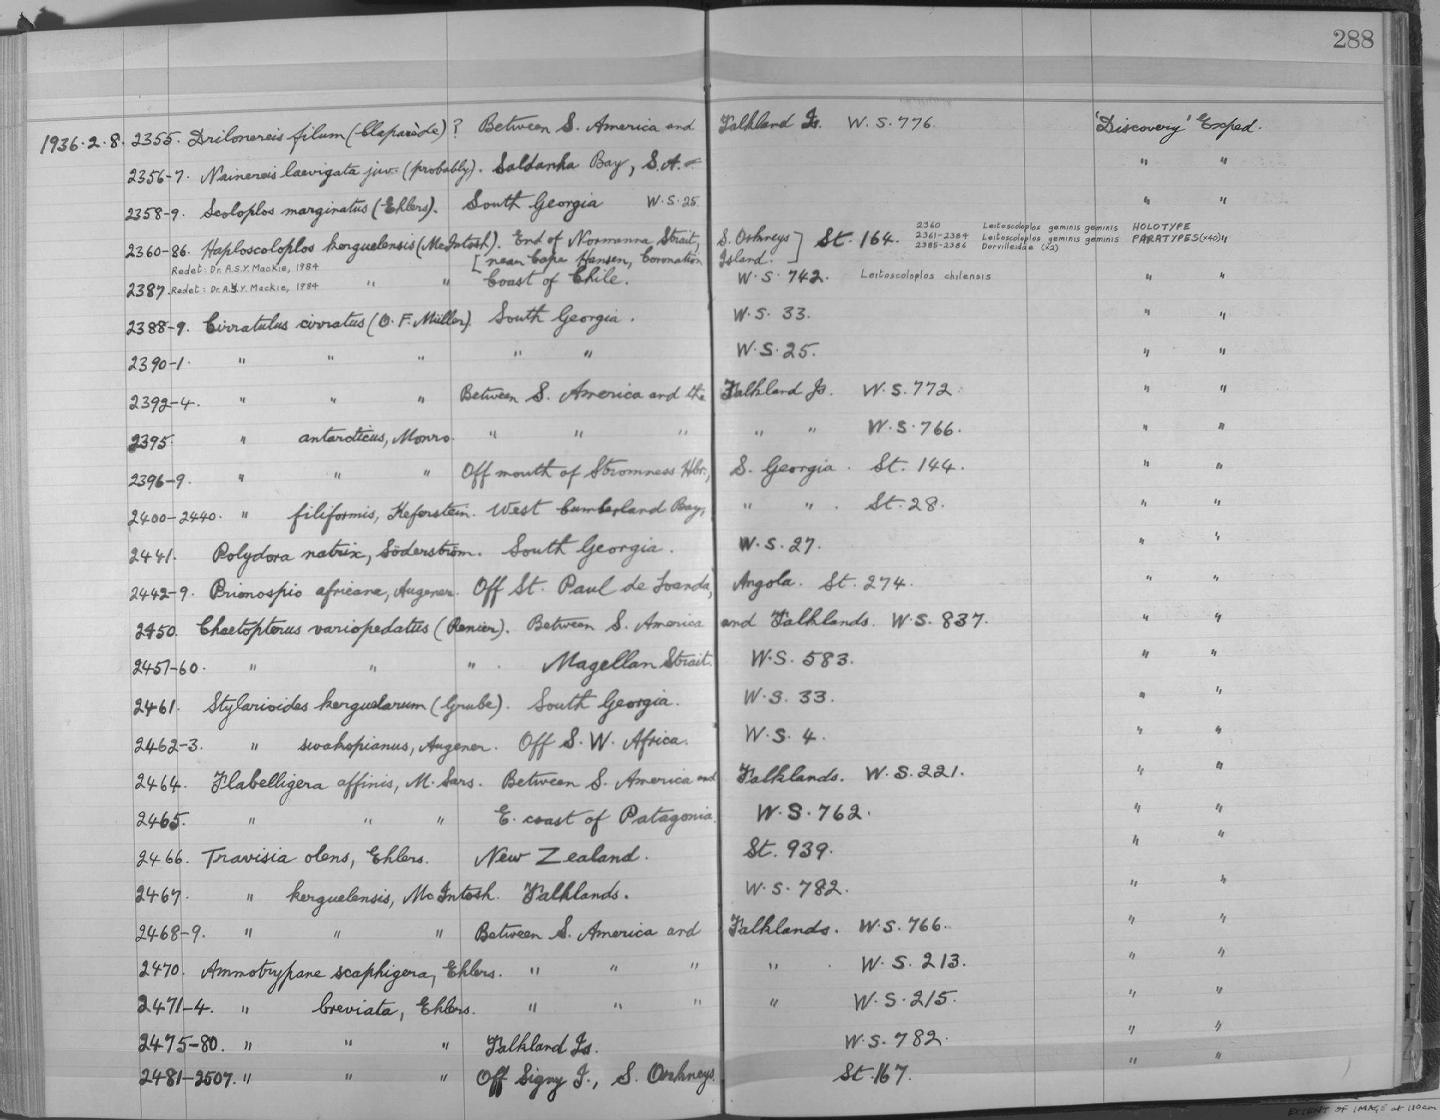 288
1936.2.8. 2355. Drilonereis filum (Claparède)? Between S. America and Falkland Is. W.S. 776. 'Discovery' Exped.
2356-7. Nainereis laevigata juv. (probably). Saldanha Bay, S.A. " "
2358-9. Scoloplos marginatus (Ehlers). South Georgia W.S. 25. " "
2360 Leitoscoloplos geminis geminis HOLOTYPE
2360-86. Haploscoloplos kerguelensis (McIntosh). End of Normanna Strait, S. Orkneys] St. 164. 2361-2384 Leitoscoloplos geminis geminis PARATYPES (x40) "
2385-2386 Dorvilleidae (x2)
[near Cape Hansen, Coronation Island.
Redet: Dr. A.S.Y. Mackie, 1984
2387. Redet: Dr. A.S.Y. Mackie, 1984 " " Coast of Chile. W.S 742. Leitoscoloplos chilensis " "
2388-9. Cirratulus cirratus (O.F. Müller). South Georgia. W.S. 33. " "
2390-1. " " " " " W.S. 25. " "
2392-4. " " " Between S. America and the Falkland Is. W.S. 772 " "
2395. " antarcticus, Monro. " " " " " W.S. 766. " "
2396-9. " " " Off mouth of Stromness Hbr., S. Georgia. St. 144. " "
2400-2440. " filiformis, Keferstein. West Cumberland Bay, " " . St. 28. " "
2441. Polydora natrix, Söderström. South Georgia. W.S. 27. " "
2442-9. Prionospio africana, Augener. Off St. Paul de Loanda, Angola. St. 274. " "
2450. Chaetopterus variopedatus (Renier). Between S. America and Falklands. W.S. 837. " "
2451-60. " " " . Magellan Strait. W.S. 583. " "
2461. Stylarioides kerguelarum (Grube). South Georgia. W.S. 33. " "
2462-3. " swakopianus, Augener. Off S.W. Africa. W.S. 4. " "
2464. Flabelligera affinis, M. Sars. Between S. America and Falklands. W.S. 221. " "
2465. " " " E. coast of Patagonia. W.S. 762. " "
2466. Travisia olens, Ehlers. New Zealand. St. 939. " "
2467. " kerguelensis, McIntosh. Falklands. W.S. 782. " "
2468-9. " " " Between S. America and Falklands. W.S. 766. " "
2470. Ammotrypane scaphigera, Ehlers. " " " " . W.S. 213. " "
2471-4. " breviata, Ehlers. " " " " W.S. 215. " "
2475-80. " " " Falkland Is. W.S. 782. " "
2481-2507. " " " Off Signy I., S. Orkneys. St. 167. " "
EXTENT OF IMAGE at 110cm